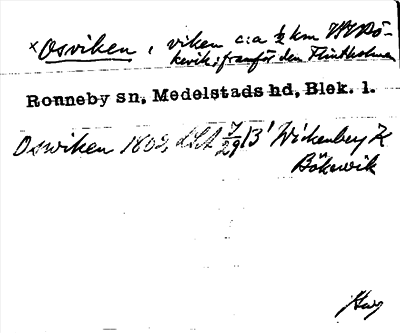 ×Osviken, viken c:a ½ km VNV Bö-
kevik; framför den Flintholmen
Ronneby sn, Medelstads hd, Blek. l.
Osviken 1802, LSA 7/29 B' Wickenberg &
Bökevik